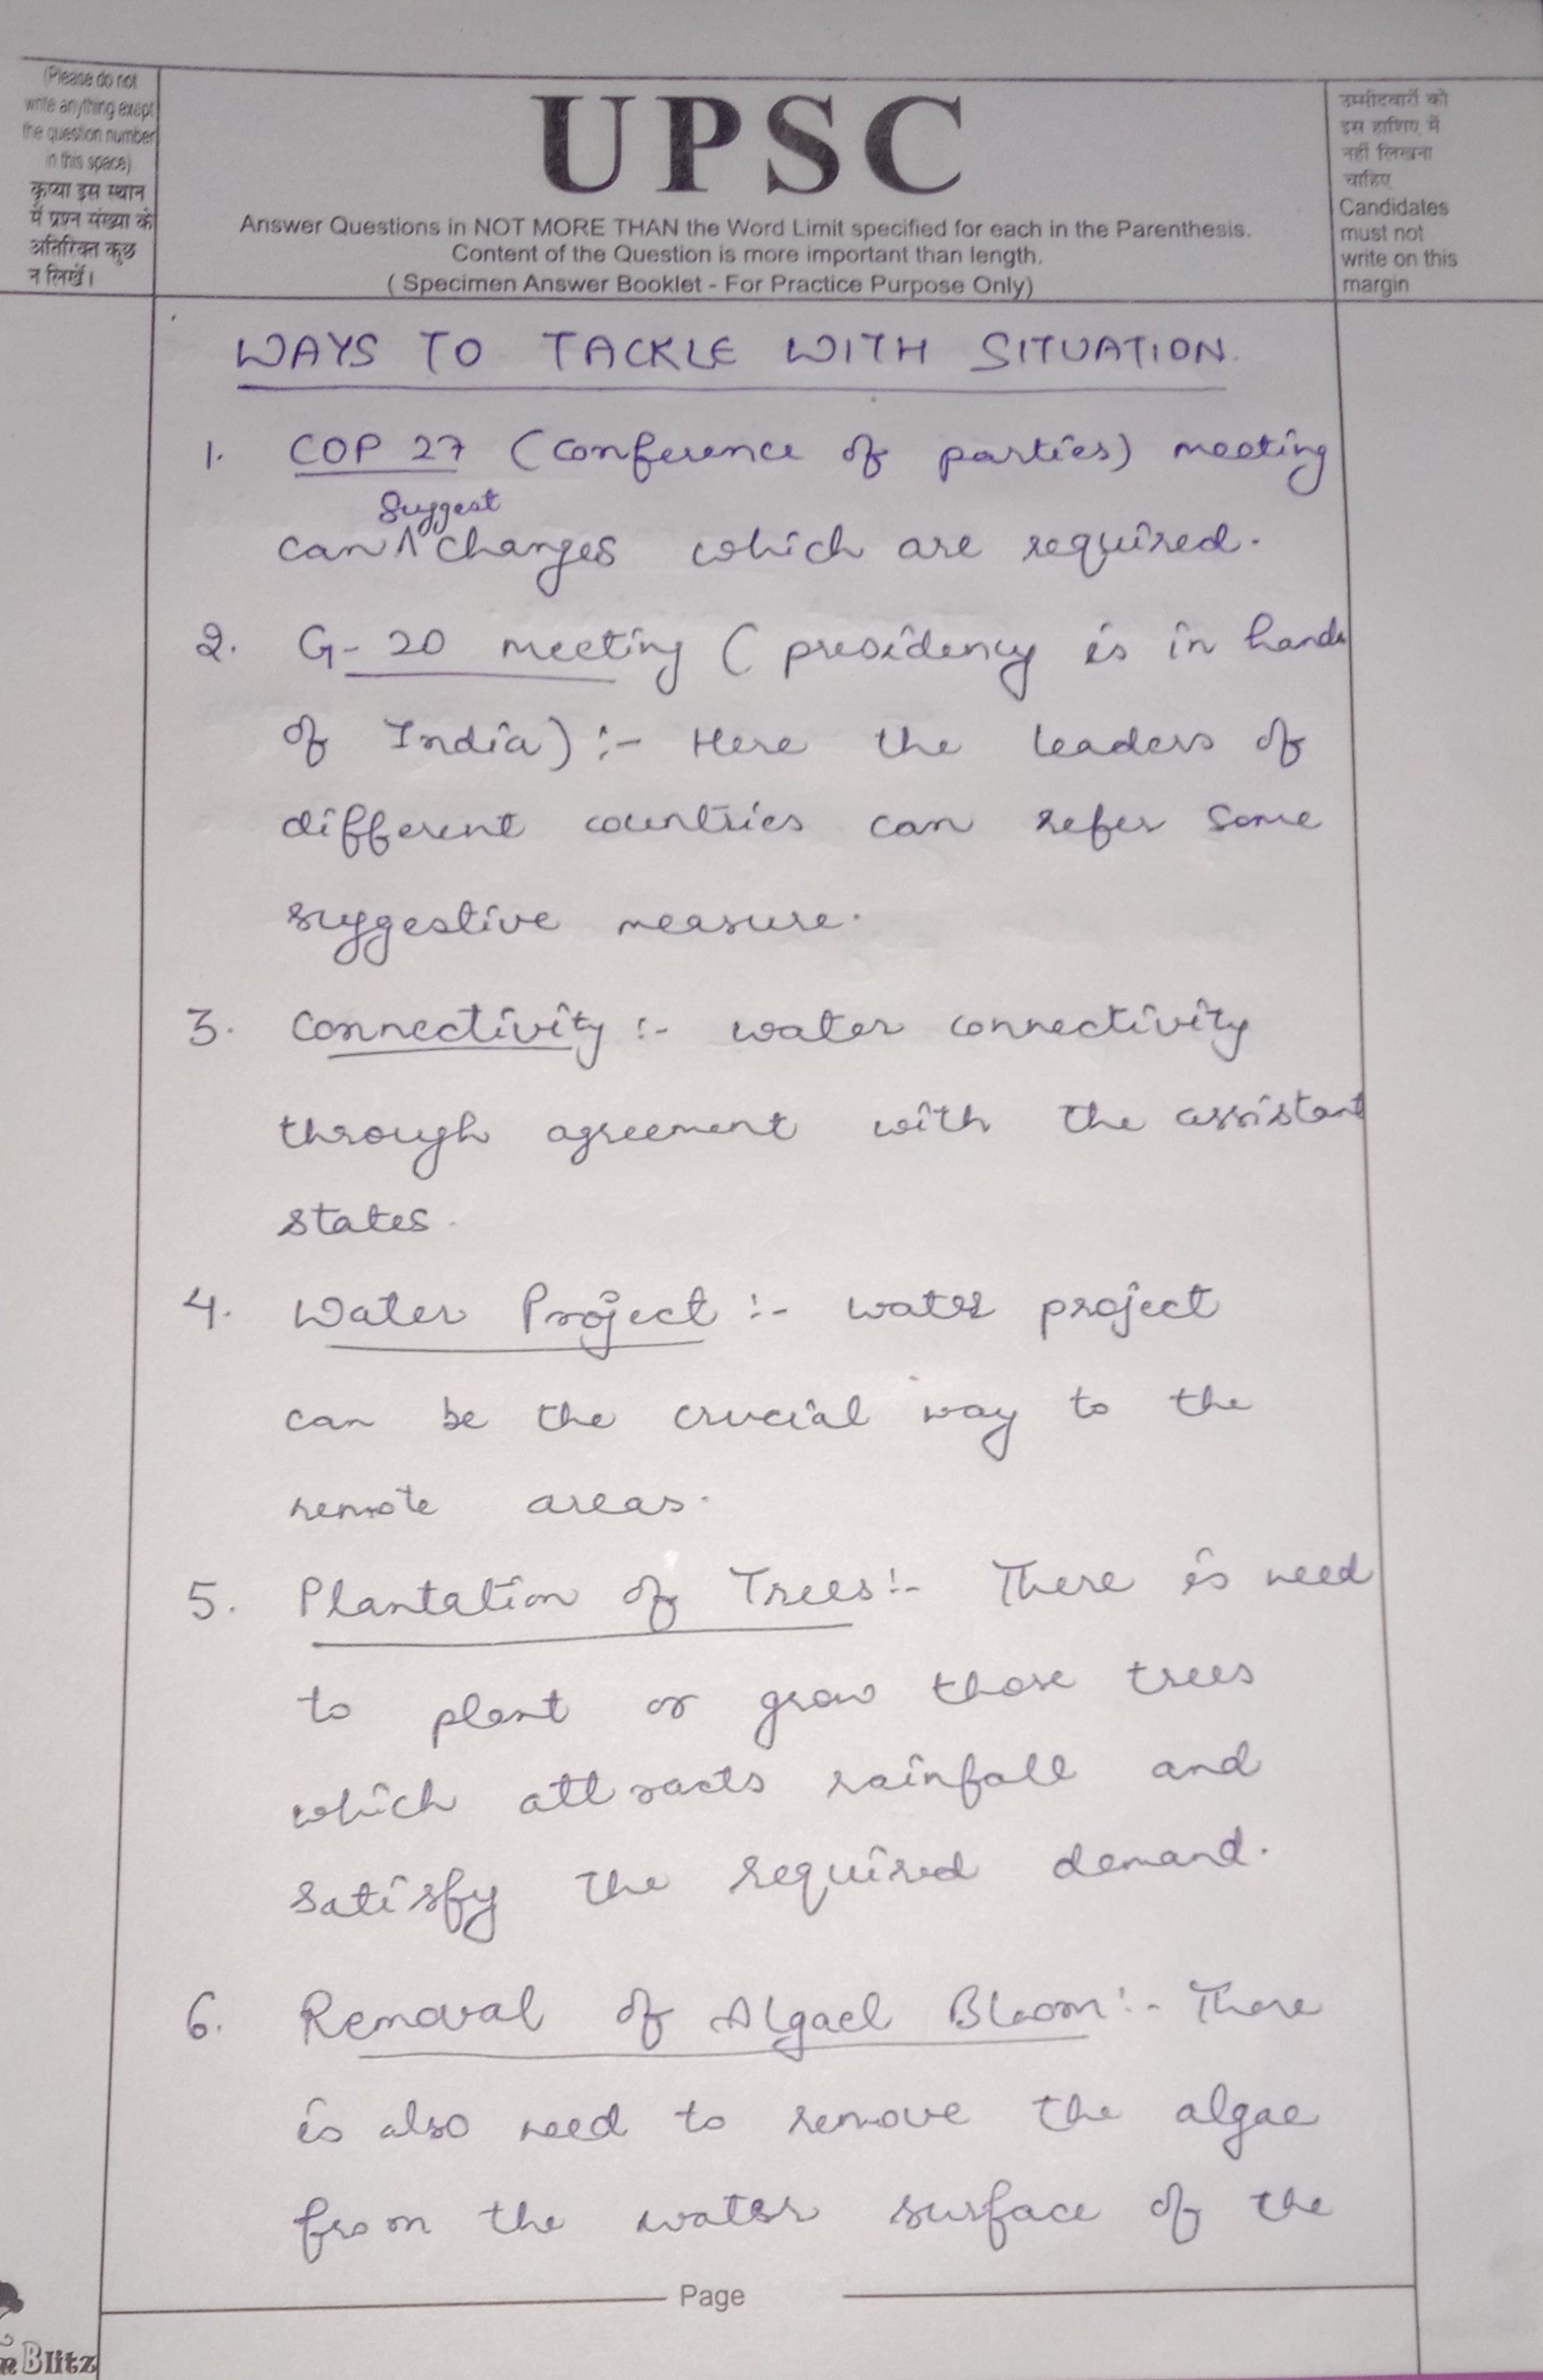 (Please do not
write anything exept
the question number
in this space)
कृप्या इस स्थान
में प्रश्न संख्या के
अतिरिक्त कुछ
न लिखें।
UPSC
Answer Questions in NOT MORE THAN the Word Limit specified for each in the Parenthesis.
Content of the Question is more important than length.
( Specimen Answer Booklet - For Practice Purpose Only)
उम्मीदवारों को
इस हाशिए में
नहीं लिखना
चाहिए
Candidates
must not
write on this
margin
WAYS TO TACKLE WITH SITUATION.
1. COP 27 (Conference of parties) meeting
Suggest
can ^ changes which are required.
2. G-20 meeting (presidency is in hands
of India) :- Here the leaders of
different countries can refer some
suggestive measure.
3. Connectivity :- water connectivity
through agreement with the assistant
states.
4. Water Project :- water project
can be the crucial way to the
remote areas.
5. Plantation of Trees :- There is need
to plant or grow those trees
which attracts rainfall and
satisfy the required demand.
6. Removal of Algael Bloom :- There
is also need to remove the algae
from the water surface of the
Page
Blitz